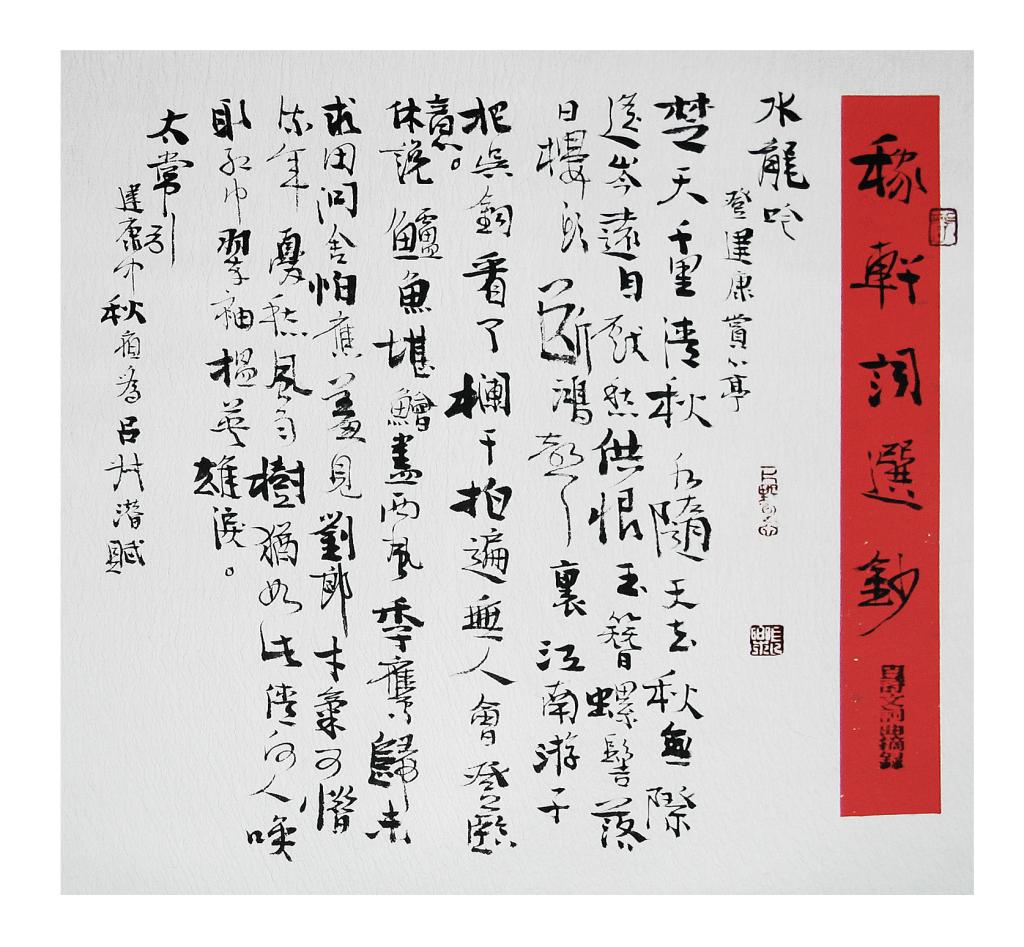 稼軒詞選鈔
水龍吟
登建康賞心亭
楚天千里清秋水隨天去秋無際
遥岑遠目獻愁供恨玉簪螺髻落
日樓頭斷鴻聲裏江南游子
把吳鉤看了欄干拍遍無人會登臨
意。
休說鱸魚堪鱠盡西風季鷹歸未
求田問舍怕應羞見劉郎才氣可惜
流年憂愁風雨樹猶如此倩何人喚
取紅巾翠袖搵英雄淚。
太常引
建康中秋夜為呂叔潛賦